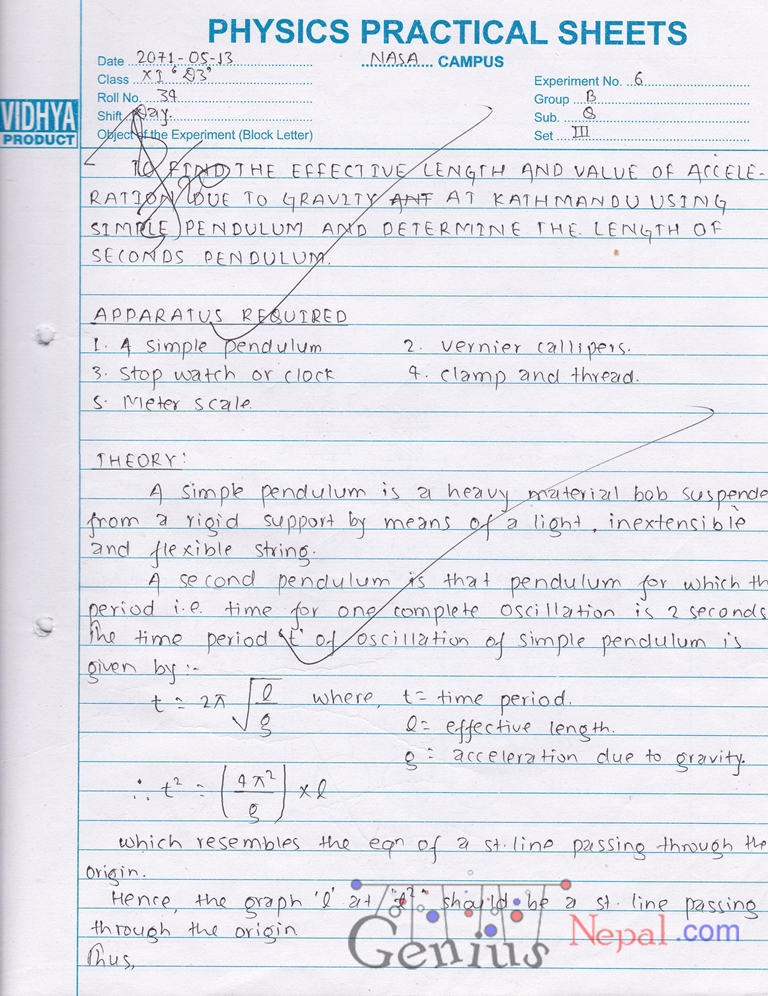 PHYSICS PRACTICAL SHEETS
Date 2071-05-13
NASA CAMPUS
Class XI 'D3'
Experiment No. 6
Roll No. 34
Group B
Shift Day.
Sub. Q
Set III
VIDHYA
PRODUCT
Object of the Experiment (Block Letter)
TO FIND THE EFFECTIVE LENGTH AND VALUE OF ACCELE-
RATION DUE TO GRAVITY ANT AT KATHMANDU USING
SIMPLE PENDULUM AND DETERMINE THE LENGTH OF
SECONDS PENDULUM.
APPARATUS REQUIRED
1. A simple pendulum 2. Vernier callipers.
3. Stop watch or clock 4. clamp and thread.
5. Meter scale.
THEORY:
A simple pendulum is a heavy material bob suspende
from a rigid support by means of a light, inextensible
and flexible string.
A second pendulum is that pendulum for which th
period i.e. time for one complete oscillation is 2 seconds
The time period 't' of oscillation of simple pendulum is
given by :-
t = 2π √(l/g) where, t = time period.
l = effective length.
g = acceleration due to gravity.
∴ t² = (4π²/g) × l
which resembles the eqn of a st. line passing through the
origin.
Hence, the graph 'l' at/ "t²" should be a st. line passing
through the origin
Thus,
Genius Nepal.com